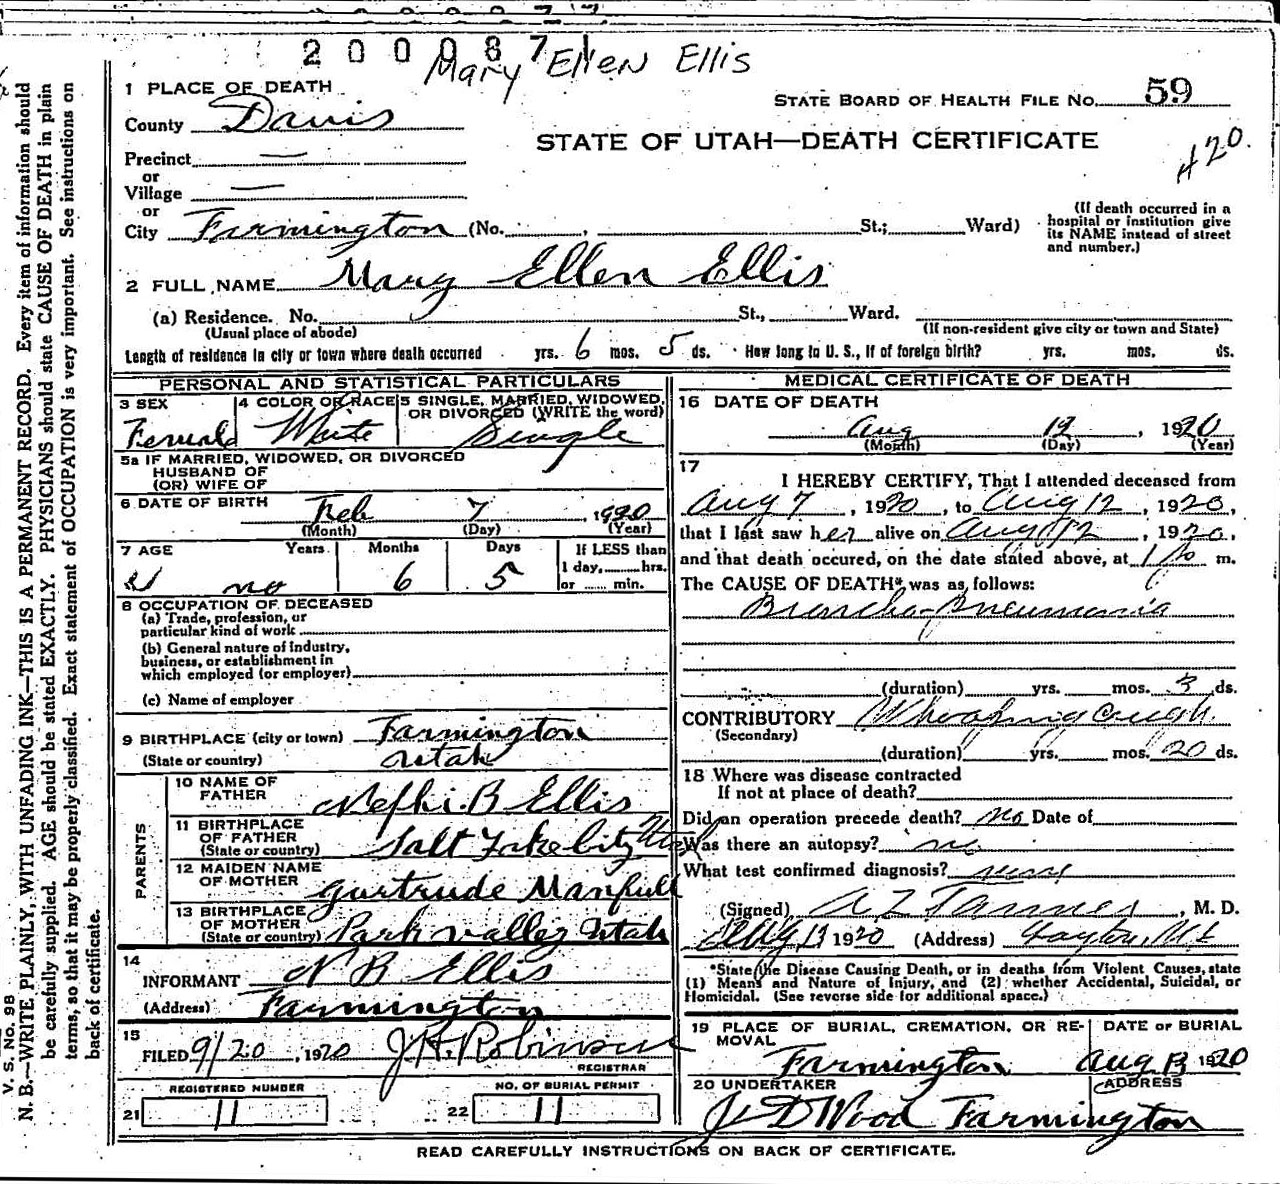 200087
Mary Ellen Ellis
1 PLACE OF DEATH
STATE BOARD OF HEALTH FILE NO. 59
County Davis
STATE OF UTAH—DEATH CERTIFICATE
#20.
Precinct —
or
Village —
or
City Farmington (No. , St.; Ward)
(If death occurred in a hospital or institution give its NAME instead of street and number.)
2 FULL NAME Mary Ellen Ellis
(a) Residence. No. St., Ward.
(Usual place of abode)
(If non-resident give city or town and State)
Length of residence in city or town where death occurred yrs. 6 mos. 5 ds. How long in U. S., if of foreign birth? yrs. mos. ds.
PERSONAL AND STATISTICAL PARTICULARS
3 SEX
Female
4 COLOR OR RACE
White
5 SINGLE, MARRIED, WIDOWED, OR DIVORCED (WRITE the word)
Single
5a IF MARRIED, WIDOWED, OR DIVORCED
HUSBAND OF
(OR) WIFE OF
6 DATE OF BIRTH Feb 7, 1920
(Month) (Day) (Year)
7 AGE Years Months Days If LESS than
1 day, hrs.
or min.
no 6 5
8 OCCUPATION OF DECEASED
(a) Trade, profession, or
particular kind of work
(b) General nature of Industry,
business, or establishment in
which employed (or employer)
(c) Name of employer
9 BIRTHPLACE (city or town) Farmington
(State or country) Utah
PARENTS
10 NAME OF FATHER Nephi B Ellis
11 BIRTHPLACE OF FATHER (State or country) Salt Lake City Utah
12 MAIDEN NAME OF MOTHER Gurtrude Manfull
13 BIRTHPLACE OF MOTHER (State or country) Park Valley Utah
14
INFORMANT N B Ellis
(Address) Farmington
15
FILED 9/20, 1920 J.H. Robinson
REGISTRAR
REGISTERED NUMBER
21 11
NO. OF BURIAL PERMIT
22 11
MEDICAL CERTIFICATE OF DEATH
16 DATE OF DEATH
Aug 12, 1920
(Month) (Day) (Year)
17
I HEREBY CERTIFY, That I attended deceased from
Aug 7, 1920, to Aug 12, 1920,
that I last saw her alive on Aug 12, 1920,
and that death occured, on the date stated above, at m.
The CAUSE OF DEATH* was as follows:
Broncho-Pneumonia
(duration) yrs. mos. 3 ds.
CONTRIBUTORY Whooping Cough
(Secondary)
(duration) yrs. mos. 20 ds.
18 Where was disease contracted
If not at place of death?
Did an operation precede death? No Date of
Was there an autopsy? no
What test confirmed diagnosis? none
(Signed) A Z Tanner, M. D.
Aug 13 1920 (Address) Layton, Ut
*State the Disease Causing Death, or in deaths from Violent Causes, state
(1) Means and Nature of Injury, and (2) whether Accidental, Suicidal, or
Homicidal. (See reverse side for additional space.)
19 PLACE OF BURIAL, CREMATION, OR REMOVAL
Farmington
DATE OF BURIAL
Aug 13 1920
20 UNDERTAKER
J D Wood
ADDRESS
Farmington
READ CAREFULLY INSTRUCTIONS ON BACK OF CERTIFICATE.
V. S. No. 98
N. B.—WRITE PLAINLY, WITH UNFADING INK—THIS IS A PERMANENT RECORD. Every item of information should
be carefully supplied. AGE should be stated EXACTLY. PHYSICIANS should state CAUSE OF DEATH in plain
terms, so that it may be properly classified. Exact statement of OCCUPATION is very important. See instructions on
back of certificate.